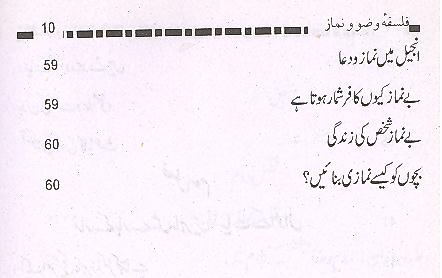 فلسفۂ وضو و نماز 10
انجیل میں نماز و دعا 59
بے نماز کیوں کافر شمار ہوتا ہے 59
بے نماز شخص کی زندگی 60
بچوں کو کیسے نمازی بنائیں؟ 60